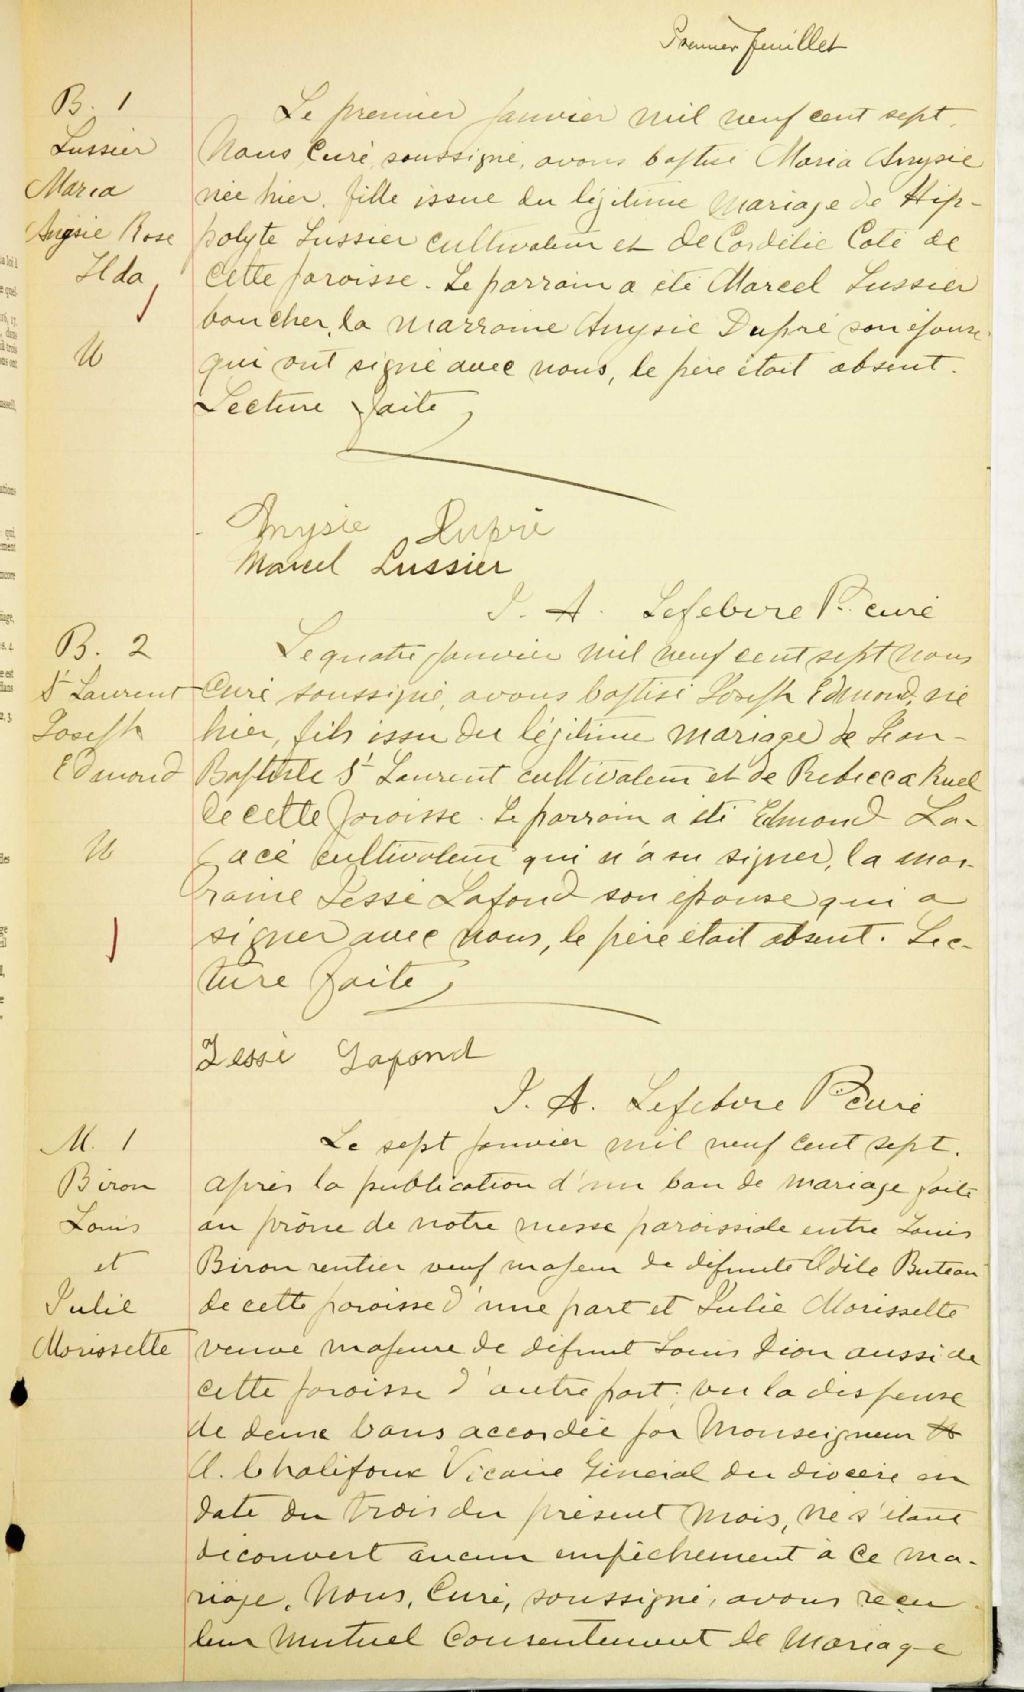 Premier feuillet
B. 1
Lussier
Maria
Anysie Rose
Ilda
U
Le premier Janvier mil neuf cent sept.
Nous Curé soussigné, avons baptisé Maria Anysie
née hier, fille issue du légitime mariage de Hip-
polyte Lussier cultivateur et de Cordélie Coté de
cette paroisse. Le parrain a été Marcel Lussier
boucher, la marraine Anysie Dupré son épouse
qui ont signé avec nous, le père était absent.
Lecture faite,
Anysie Dupré
Marcel Lussier
J. A. Lefebvre Ptre curé
B. 2
St Laurent
Joseph
Edmond
U
Le quatre Janvier mil neuf cent sept nous
Curé soussigné, avons baptisé Joseph Edmond, né
hier, fils issu du légitime mariage de Jean-
Baptiste St Laurent cultivateur et de Rebecca Ruel
de cette paroisse. Le parrain a été Edmond La-
cacé cultivateur qui n'a su signer, la mar-
raine Jessé Lafond son épouse qui a
signer avec nous, le père était absent. Lec-
ture faite,
Jessé Lafond
J. A. Lefebvre Ptre curé
M. 1
Biron
Louis
et
Julie
Morissette
Le sept Janvier mil neuf cent sept.
après la publication d'un ban de mariage faite
au prône de notre messe paroissiale entre Louis
Biron rentier veuf majeur de défunte Odile Buteau
de cette paroisse d'une part et Julie Morissette
veuve majeure de défunt Louis Dion aussi de
cette paroisse d'autre part; vu la dispense
de deux bans accordée par Monseigneur
A. Chalifoux Vicaire Général du diocèse en
date du trois du présent mois, ne s'étant
découvert aucun empêchement à ce ma-
riage, Nous, Curé, soussigné, avons reçu
leur mutuel Consentement de Mariage